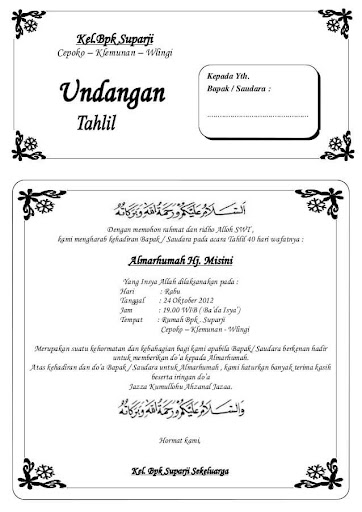 Kel.Bpk Suparji
Cepoko – Klemunan – Wlingi
Undangan
Tahlil
Kepada Yth.
Bapak / Saudara :
........................................................
اَلسَّلَامُ عَلَيْكُمْ وَرَحْمَةُ اللهِ وَبَرَكَاتُهُ
Dengan memohon rahmat dan ridho Alloh SWT ,
kami mengharab kehadiran Bapak / Saudara pada acara Tahlil 40 hari wafatnya :
Almarhumah Hj. Misini
Yang Insya Allah dilaksanakan pada :
Hari : Rabu
Tanggal : 24 Oktober 2012
Jam : 19.00 WIB ( Ba'da Isya')
Tempat : Rumah Bpk . Suparji
Cepoko – Klemunan - Wlingi
Merupakan suatu kehormatan dan kebahagian bagi kami apabila Bapak / Saudara berkenan hadir
untuk memberikan do'a kepada Almarhumah.
Atas kehadiran dan do'a Bapak / Saudara untuk Almarhumah , kami haturkan banyak terima kasih
beserta iringan do'a
Jazza Kumullohu Ahzanal Jazaa.
وَالسَّلَامُ عَلَيْكُمْ وَرَحْمَةُ اللهِ وَبَرَكَاتُهُ
Hormat kami,
Kel. Bpk Suparji Sekeluarga